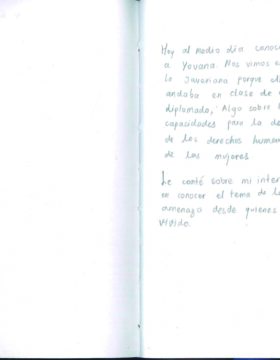 Hoy al medio día conoc
a Yovana. Nos vimos e
la Javeriana porque el
andaba en clase de
diplomado, Algo sobre l
capacidades para la de
de los derechos human
de las mujeres.
Le conté sobre mi inter
en conocer el tema de la
amenaza desde quienes
vivido.